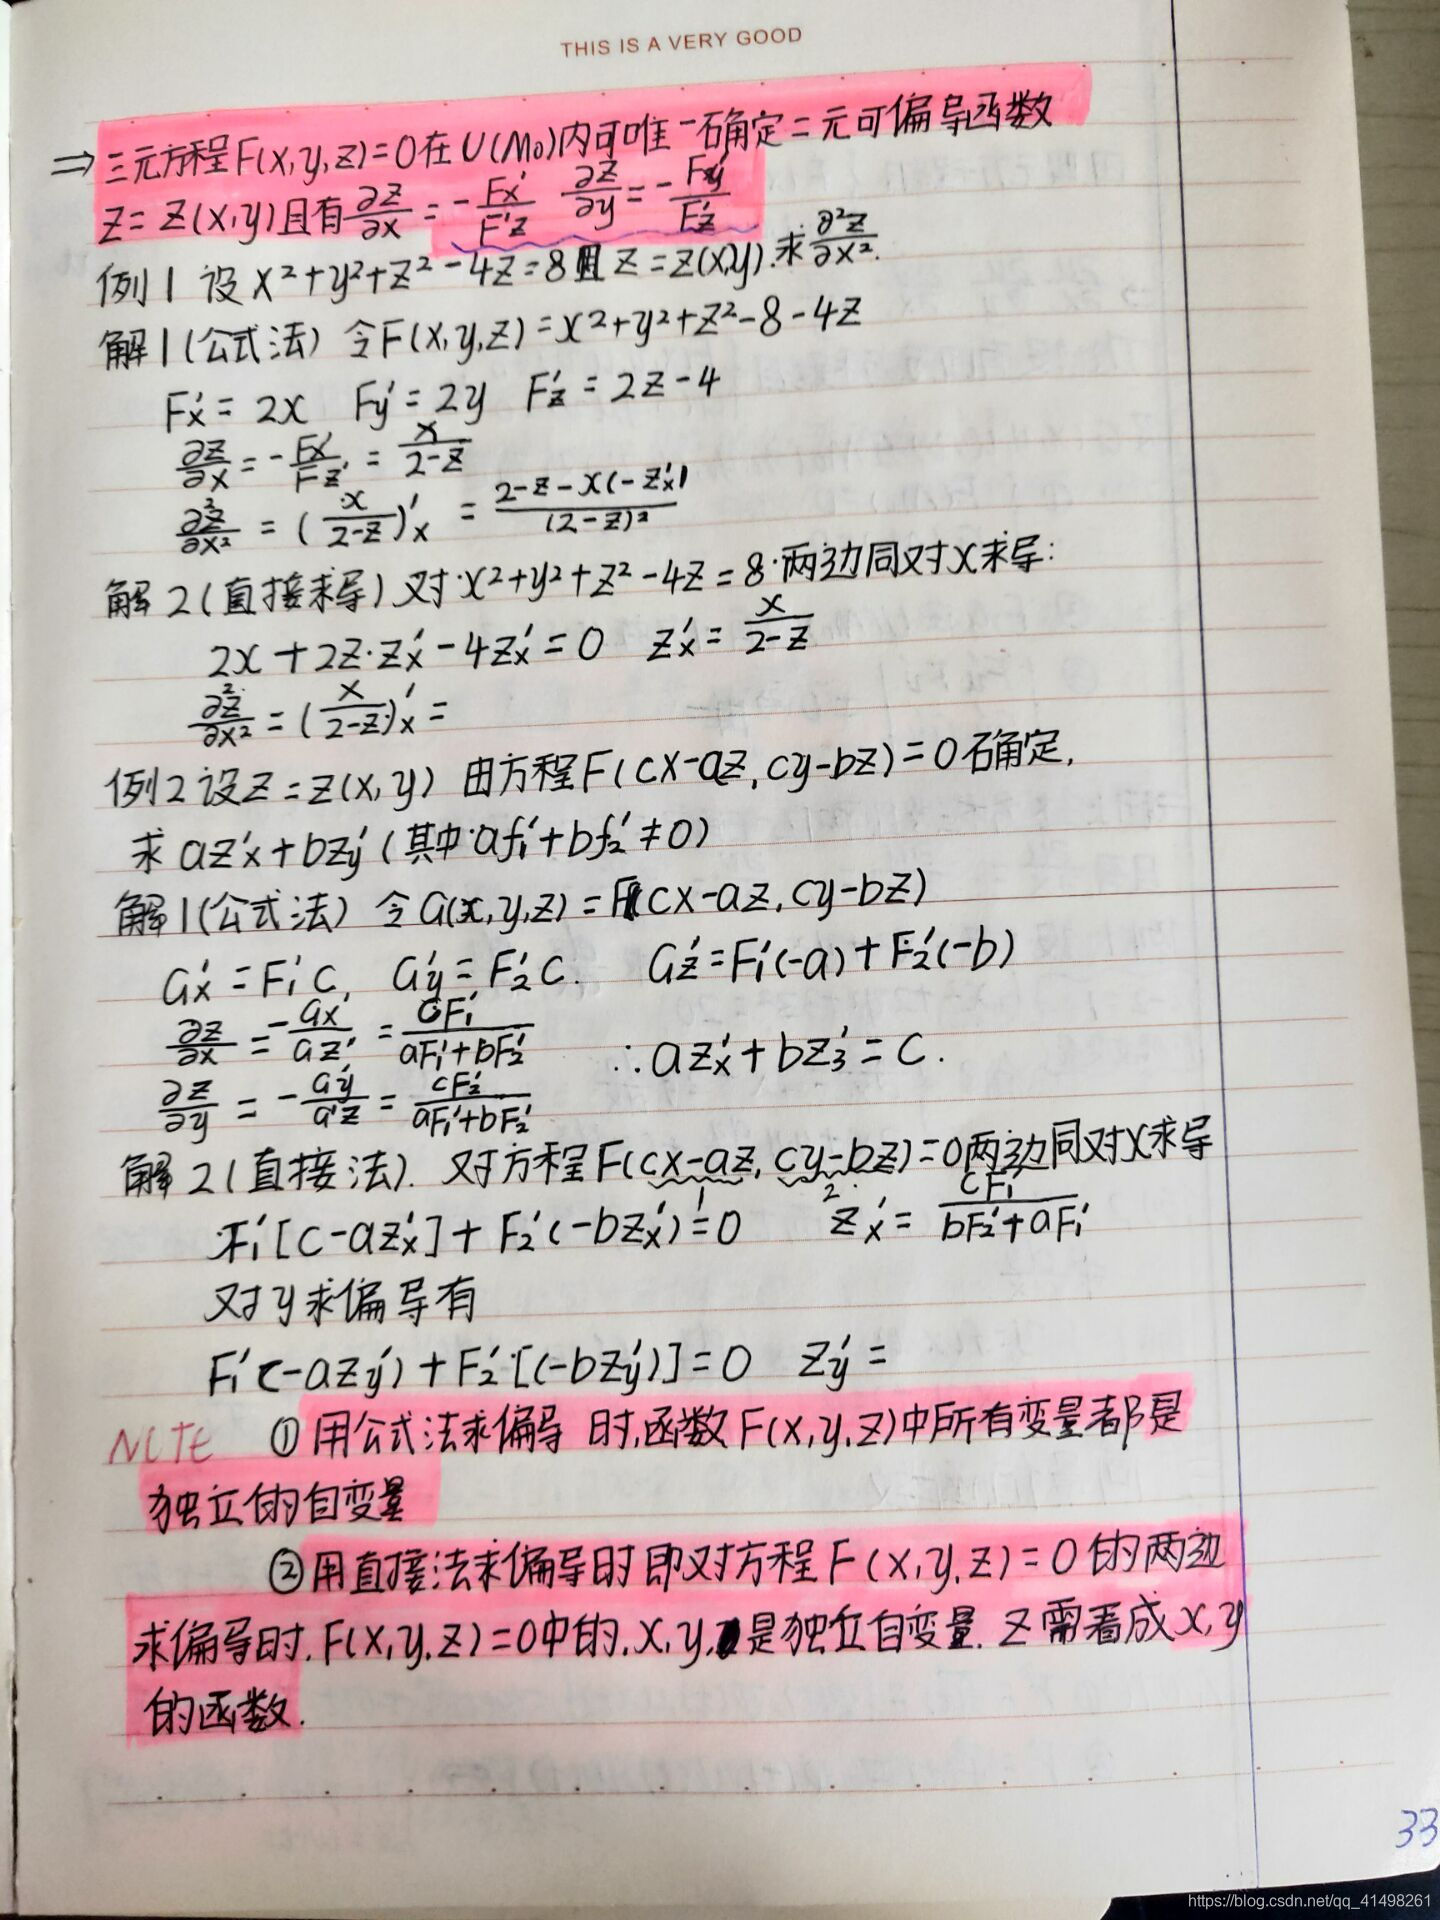 THIS IS A VERY GOOD
⇒ 三元方程F(x,y,z)=0在U(M₀)内可唯一确定二元可偏导函数
z=z(x,y)且有∂z/∂x=-Fx'/F'z ∂z/∂y=-Fy'/F'z
例1 设 x²+y²+z²-4z=8且z=z(x,y).求∂²z/∂x².
解1(公式法) 令F(x,y,z)=x²+y²+z²-8-4z
Fx'=2x Fy'=2y Fz'=2z-4
∂z/∂x=-Fx'/Fz'=x/(2-z)
∂²z/∂x²=(x/(2-z))'x=(2-z-x(-zx'))/(2-z)²
解2(直接求导)对x²+y²+z²-4z=8两边同对x求导:
2x+2z·zx'-4zx'=0 zx'=x/(2-z)
∂²z/∂x²=(x/(2-z))'x=
例2 设z=z(x,y) 由方程F(cx-az,cy-bz)=0确定,
求azx'+bzy'(其中af₁'+bf₂'≠0)
解1(公式法) 令G(x,y,z)=F(cx-az,cy-bz)
Gx'=F₁'c, Gy'=F₂'c. Gz'=F₁'(-a)+F₂'(-b)
∂z/∂x=-Gx'/Gz'=cF₁'/(aF₁'+bF₂') ∴azx'+bz₃'=c.
∂z/∂y=-Gy'/G'z=cF₂'/(aF₁'+bF₂')
解2(直接法). 对方程F(cx-az,cy-bz)=0两边同对x求导
1 2
F₁'[c-azx']+F₂'(-bzx')=0 zx'=cF₁'/(bF₂'+aF₁')
对y求偏导有
F₁'(-azy')+F₂'[(-bzy')]=0 zy'=
NOTE ①用公式法求偏导时,函数F(x,y,z)中所有变量都是
独立的自变量
②用直接法求偏导时即对方程F(x,y,z)=0的两边
求偏导时.F(x,y,z)=0中的.x,y,是独立自变量.z需看成x,y
的函数.
33
https://blog.csdn.net/qq_41498261